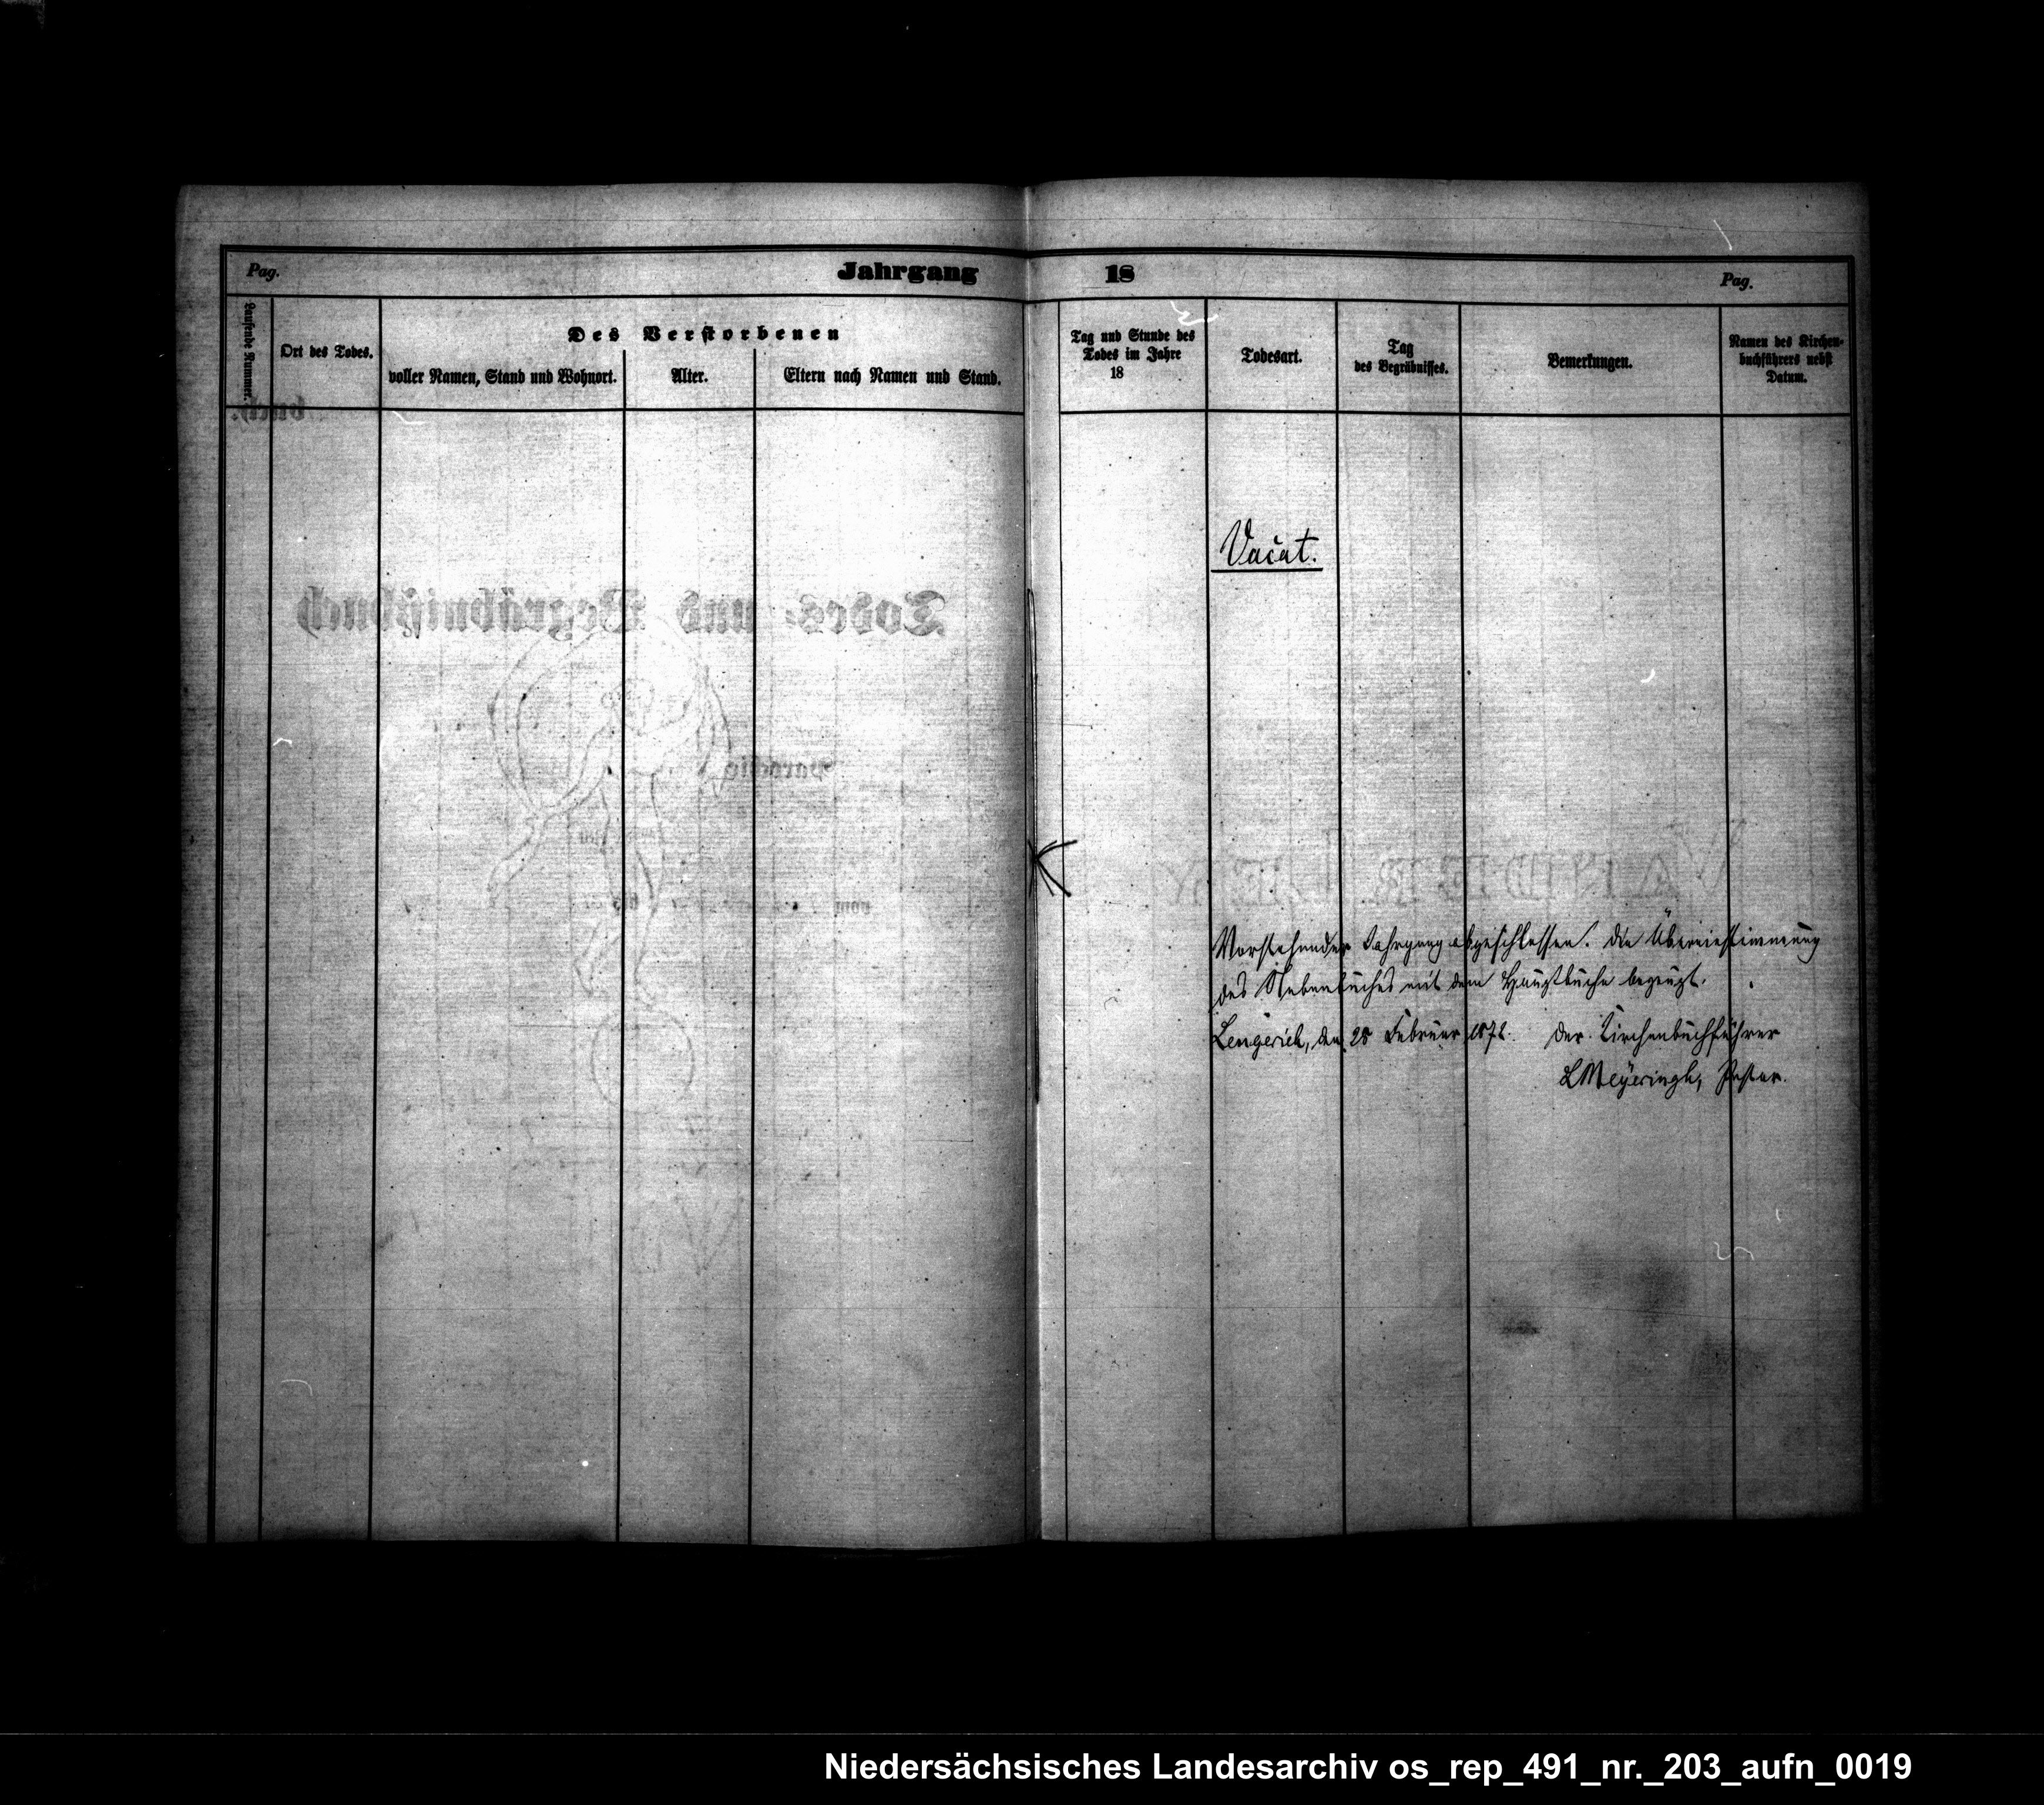 Pag.
Jahrgang 18
Pag.
Laufende Nummer.
Ort des Todes.
Des Verstorbenen
voller Namen, Stand und Wohnort.
Alter.
Eltern nach Namen und Stand.
Tag und Stunde des
Todes im Jahre
18
Todesart.
Tag
des Begräbnisses.
Bemerkungen.
Namen des Kirchen-
buchführers nebst
Datum.
Vacat.
Todes- und Begräbnißbuch
Parochie
vom
Vorstehender Jahrgang abgeschlossen. Die Übereinstimmung
des Nebenbuches mit dem Hauptbuche bezeugt.
Lengerich, den 28 Februar 1872. Der Kirchenbuchführer
LMeyeringh, Pastor.
Niedersächsisches Landesarchiv os_rep_491_nr._203_aufn_0019